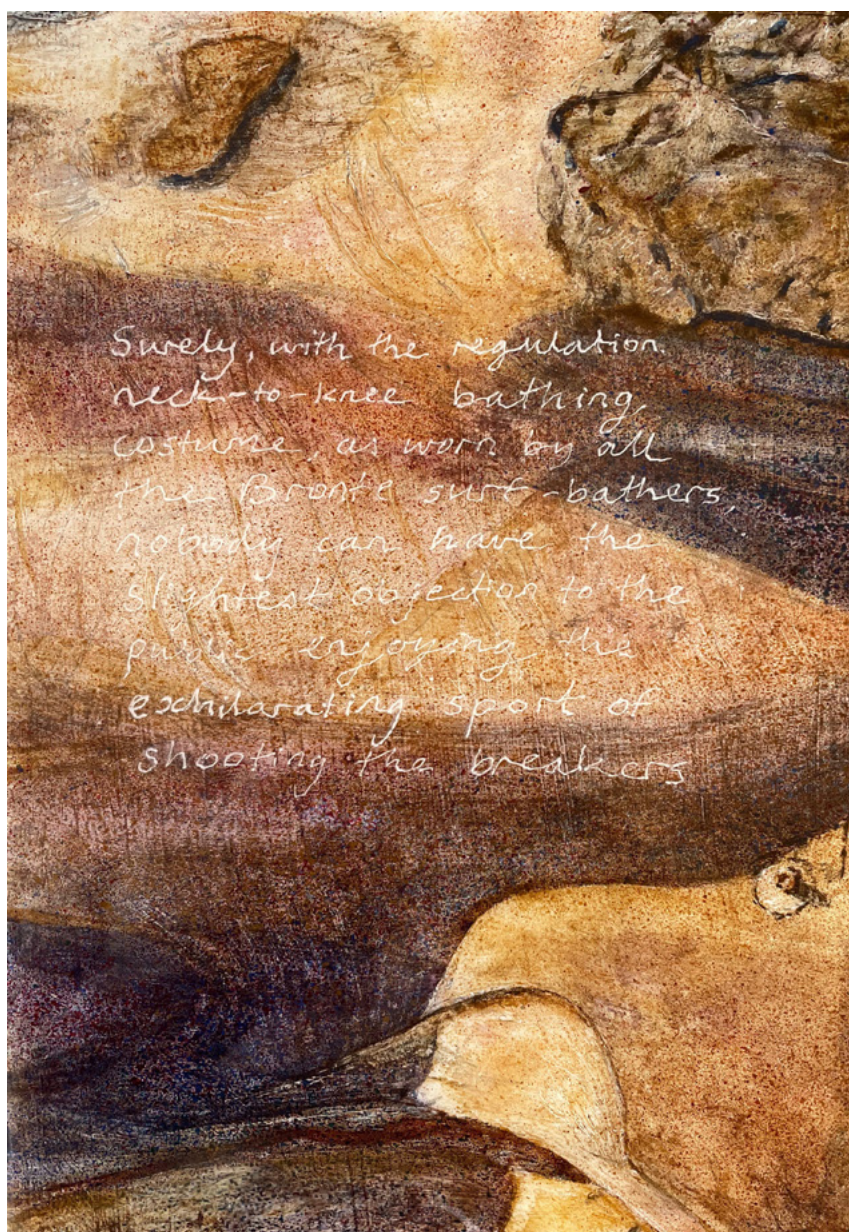 Surely, with the regulation
neck-to-knee bathing
costume, as worn by all
the Bronte surf-bathers,
nobody can have the
slightest objection to the
public enjoying the
exhilarating sport of
shooting the breakers